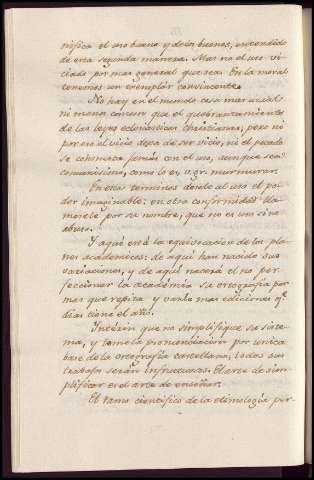 nifica el uso bueno y de los buenos, entendido
de esta segunda manera. Mas no el uso vi-
ciado por mas general que sea. En la moral
tenemos un exemplar convincente.
No hay en el mundo cosa mas usual
ni menos comun que el quebrantamiento
de las leyes eclesiasticas christianas, pero ni
por eso el vicio dexa de ser vicio, ni el pecado
se cohonesta jamás con el uso, aunque sea
comunisimo, como lo es, v. gr. murmurar.
En estos terminos désele al uso el po-
der imaginable: en otro confirmidos lla-
mesele por su nombre, que no es uso sino
abuso.
Y aquí está la equivocacion de los pla-
nes academicos: de aquí han nacido sus
variaciones, y de aquí nacerá el no per-
feccionar la academia su ortografia por
mas que repita y varíe mas ediciones qe.
dias tiene el año.
Interin que no simplifique su siste-
ma, y tome la pronunciacion por unica
base de la ortografia castellana, todos sus
trabajos serán infructuosos. El arte de sim-
plificar es el arte de enseñar.
El ramo cientifico de la etimologia per-